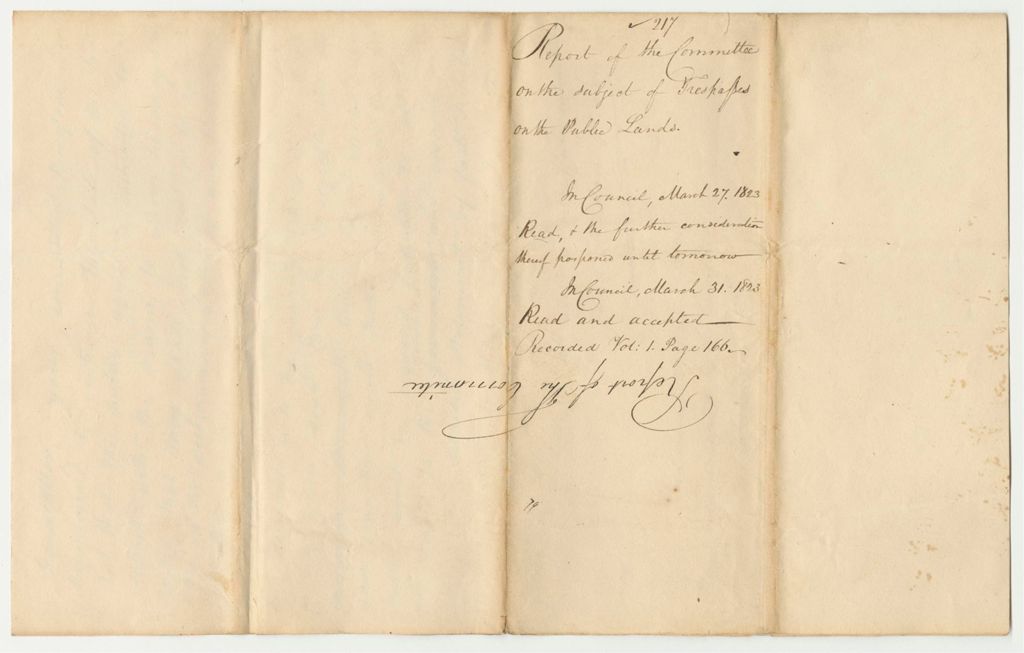 217
Report of the Committee
on the subject of Trespasses
on the Public Lands.
In Council, March 27. 1823
Read, & the further consideration
thereof postponed until tomorrow
In Council, March 31. 1823
Read and accepted
Recorded Vol: 1. Page 166
Report of The Committee